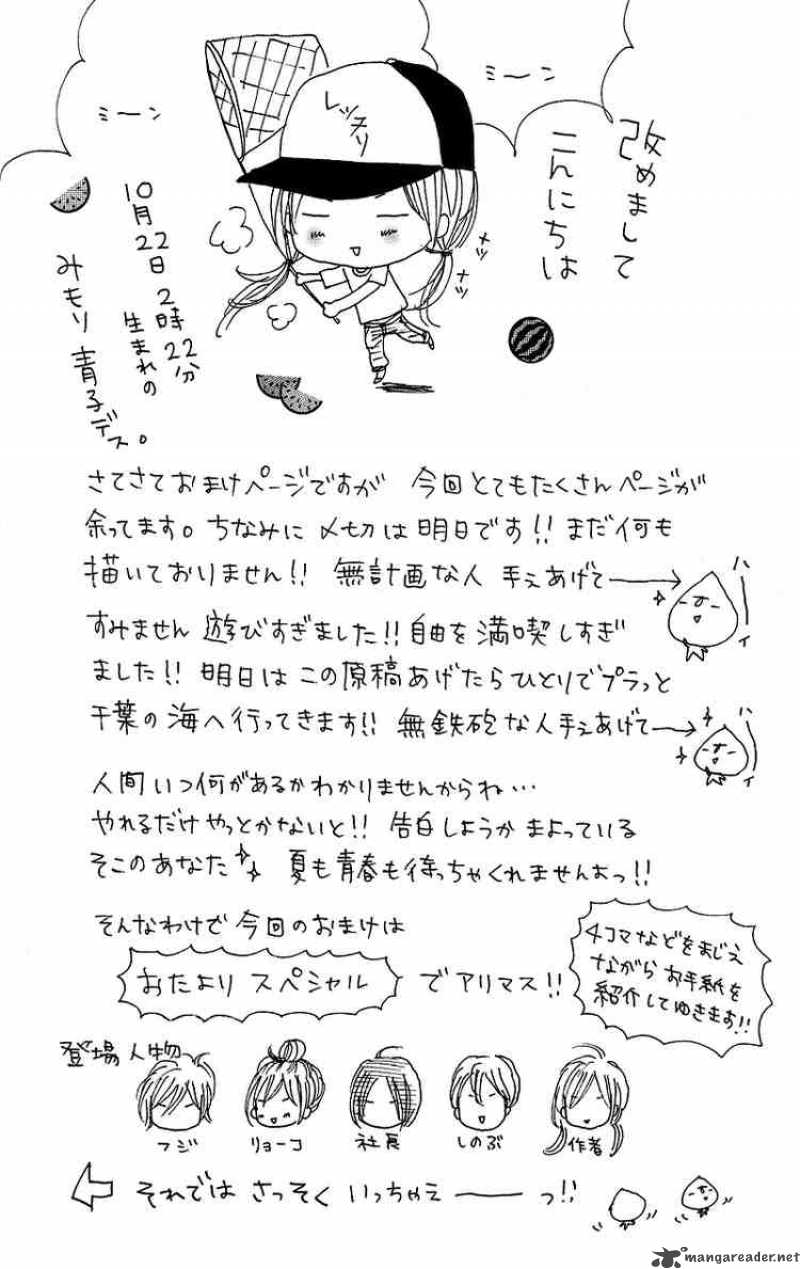 改めまして
こんにちは
ミーン
ミーン
レッスリ
メッ
メッ
10月22日 2時22分
生まれの
みもり 青子デス。
さてさておまけページですが 今回とてもたくさんページが
余ってます。ちなみに〆切は明日です!! まだ何も
描いておりません!! 無計画な人 手ぇあげて→
ハーイ
すみません 遊びすぎました!! 自由を満喫しすぎ
ました!! 明日はこの原稿あげたらひとりでプラっと
千葉の海へ行ってきます!! 無鉄砲な人手ぇあげて→
ハーイ
人間いつ何があるかわかりませんからね…
やれるだけやっとかないと!! 告白しようか まよっている
そこのあなた 夏も青春も待っちゃくれませんよっ!!
そんなわけで 今回のおまけは
おたより スペシャル でアリマス!!
4コマなどをまじえ
ながら お手紙を
紹介してゆきます!!
登場人物
フジ リョーコ 社長 しのぶ 作者
それでは さっそく いっちゃえ──っ!!
mangareader.net